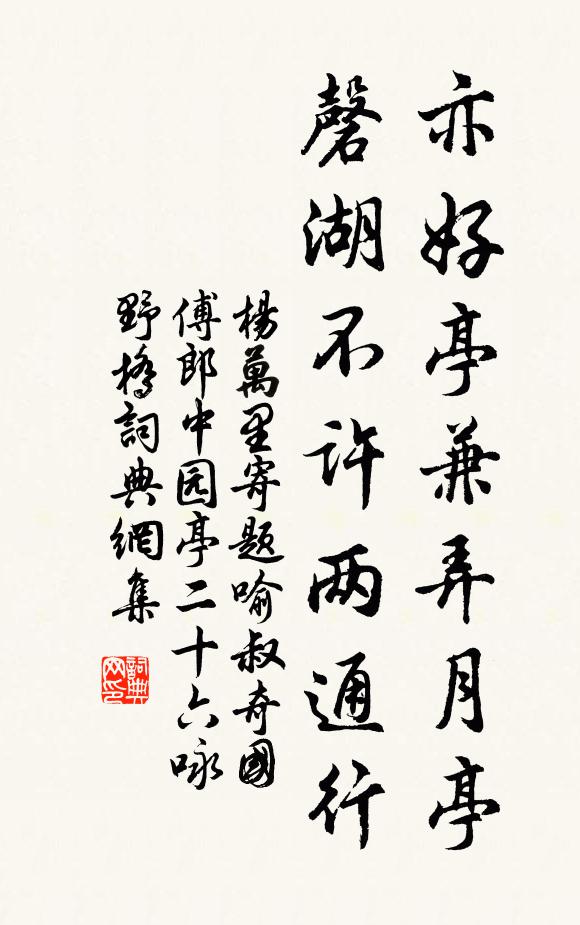 亦好亭兼弄月亭
磬湖不许两通行
楊萬里寄題喻叔奇國
傅郎中园亭二十六咏
野橋詞典網集
詞典
网印